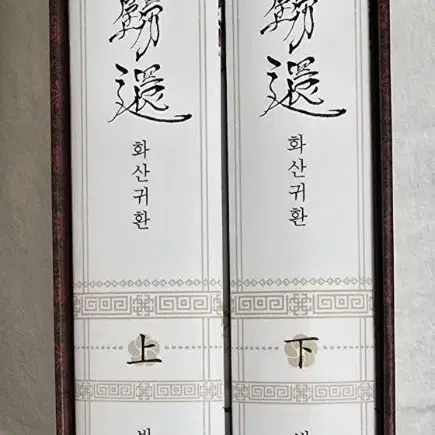 還
화산귀환
上
還
화산귀환
下